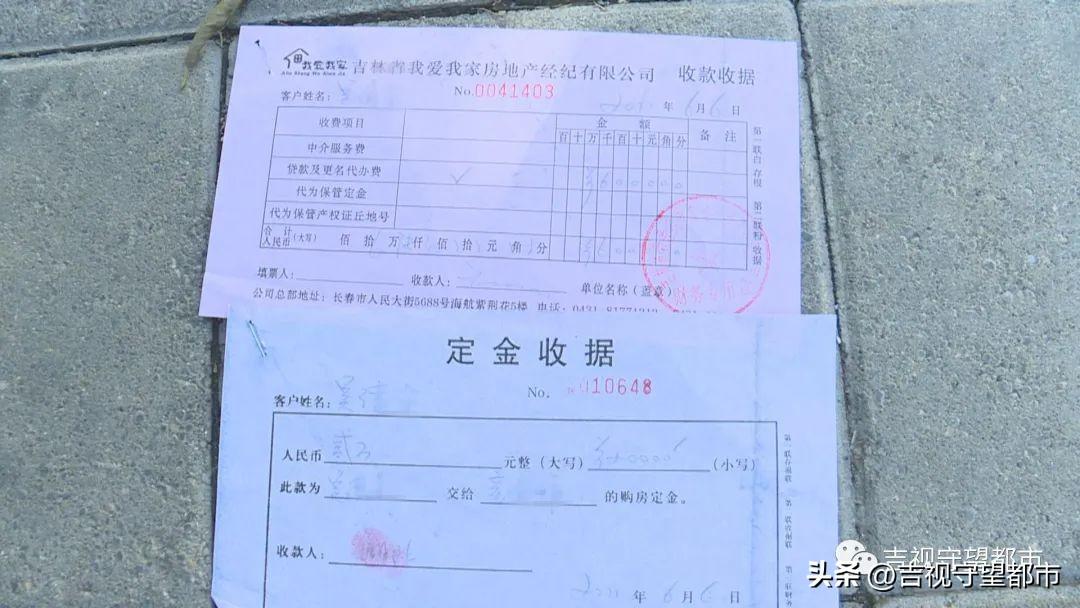 我爱我家 吉林省我爱我家房地产经纪有限公司 收款收据
No.0041403
客户姓名: 年 6月6日
收费项目 金额 备注
百十万千百十元角分
中介服务费
贷款及更名代办费 ✓
代为保管定金
代为保管产权证丘地号
合计人民币(大写) 佰 拾 万 仟 佰 拾 元 角 分
第一联白 存根 第二联粉 收据
填票人: 收款人: 单位名称(蓝章)
财务专用章
公司总部地址:长春市人民大街5688号海航紫荆花5楼 电话:
定金收据
No. 010648
客户姓名:
人民币 贰万 元整(大写) (小写)
此款为 交给 的购房定金。
收款人:
2021 年 6 月 6 日
吉视守望都市
头条 @吉视守望都市